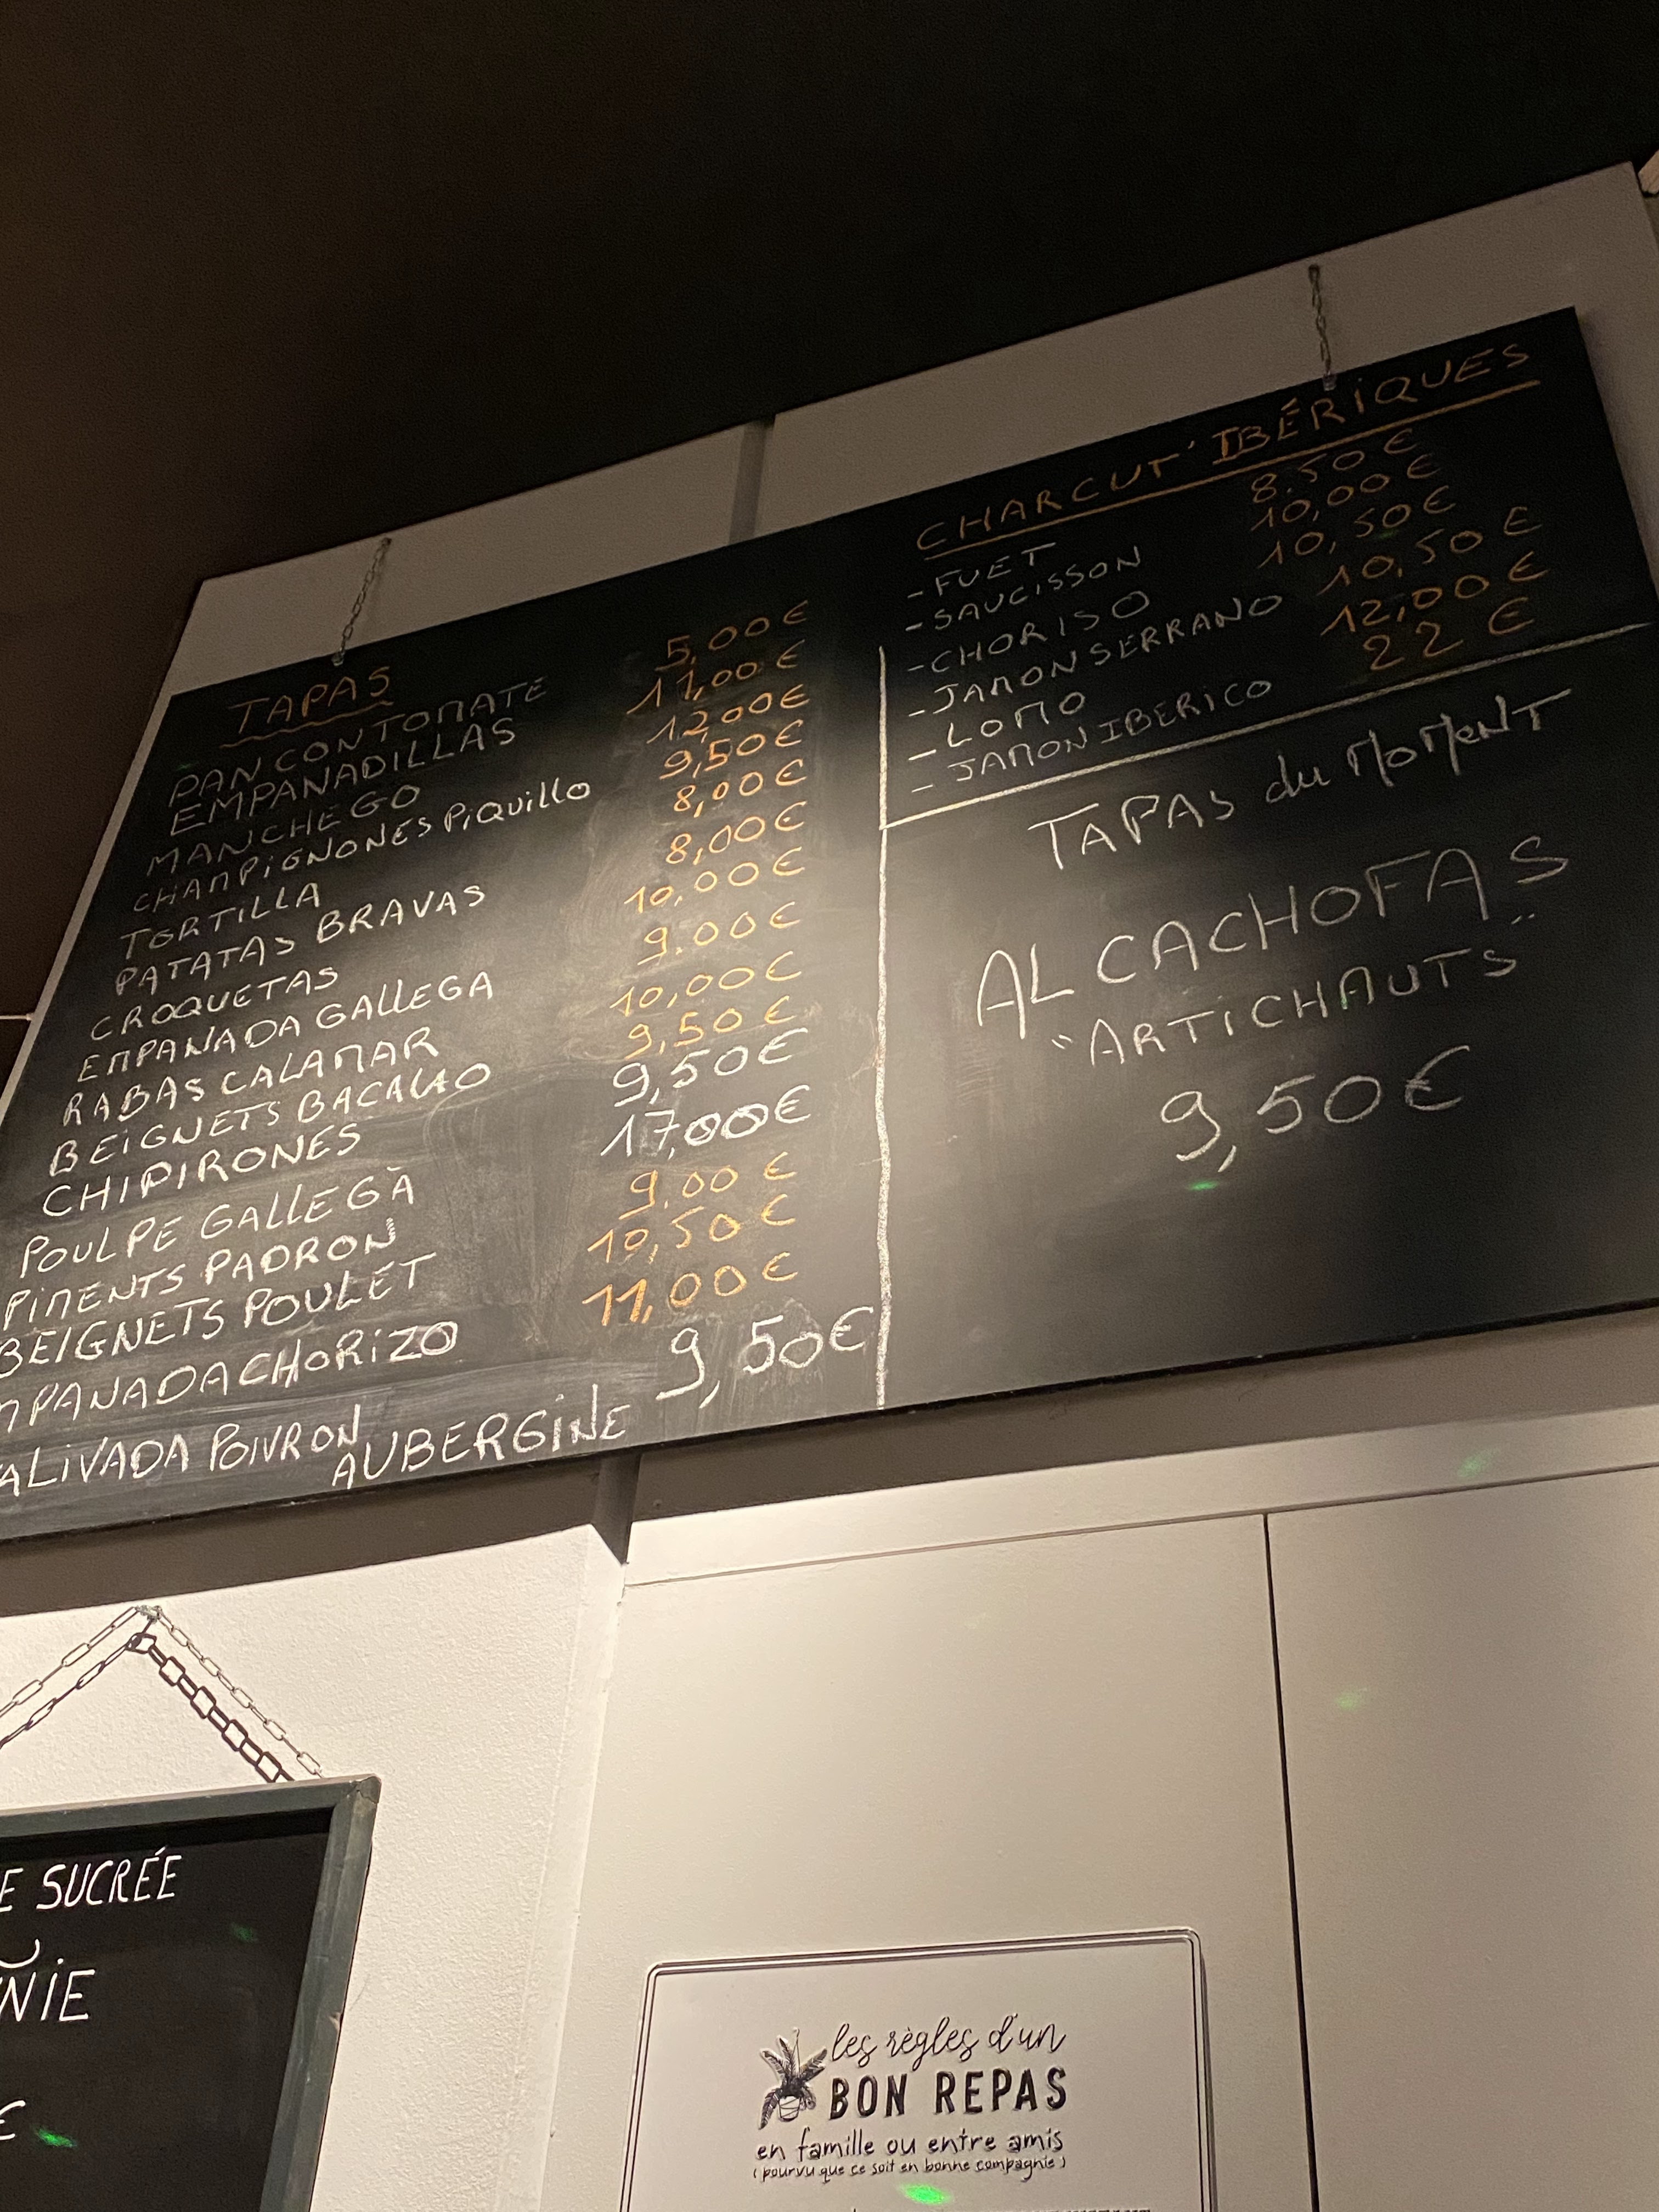 TAPAS
PAN CON TOMATE 5,00€
EMPANADILLAS 11,00€
MANCHEGO 12,00€
CHAMPIGNONES PIQUILLO 9,50€
TORTILLA 8,00€
PATATAS BRAVAS 8,00€
CROQUETAS 10,00€
EMPANADA GALLEGA 9.00€
RABAS CALAMAR 10,00€
BEIGNETS BACALAO 9,50€
CHIPIRONES 9,50€
POULPE GALLEGA 17,00€
PIMENTS PADRON 9,00€
BEIGNETS POULET 10,50€
MPANADA CHORIZO 11,00€
ALIVADA POIVRON 9,50€
AUBERGINE
CHARCUT' IBÉRIQUES
-FUET 8.50€
-SAUCISSON 10,00€
-CHORISO 10,50€
-JAMON SERRANO 10,50€
-LOMO 12,00€
-JAMON IBERICO 22€
TAPAS du MOMENT
ALCACHOFAS
"ARTICHAUTS"
9,50€
E SUCRÉE
NIE
€
les règles d'un
BON REPAS
en famille ou entre amis
(pourvu que ce soit en bonne compagnie)